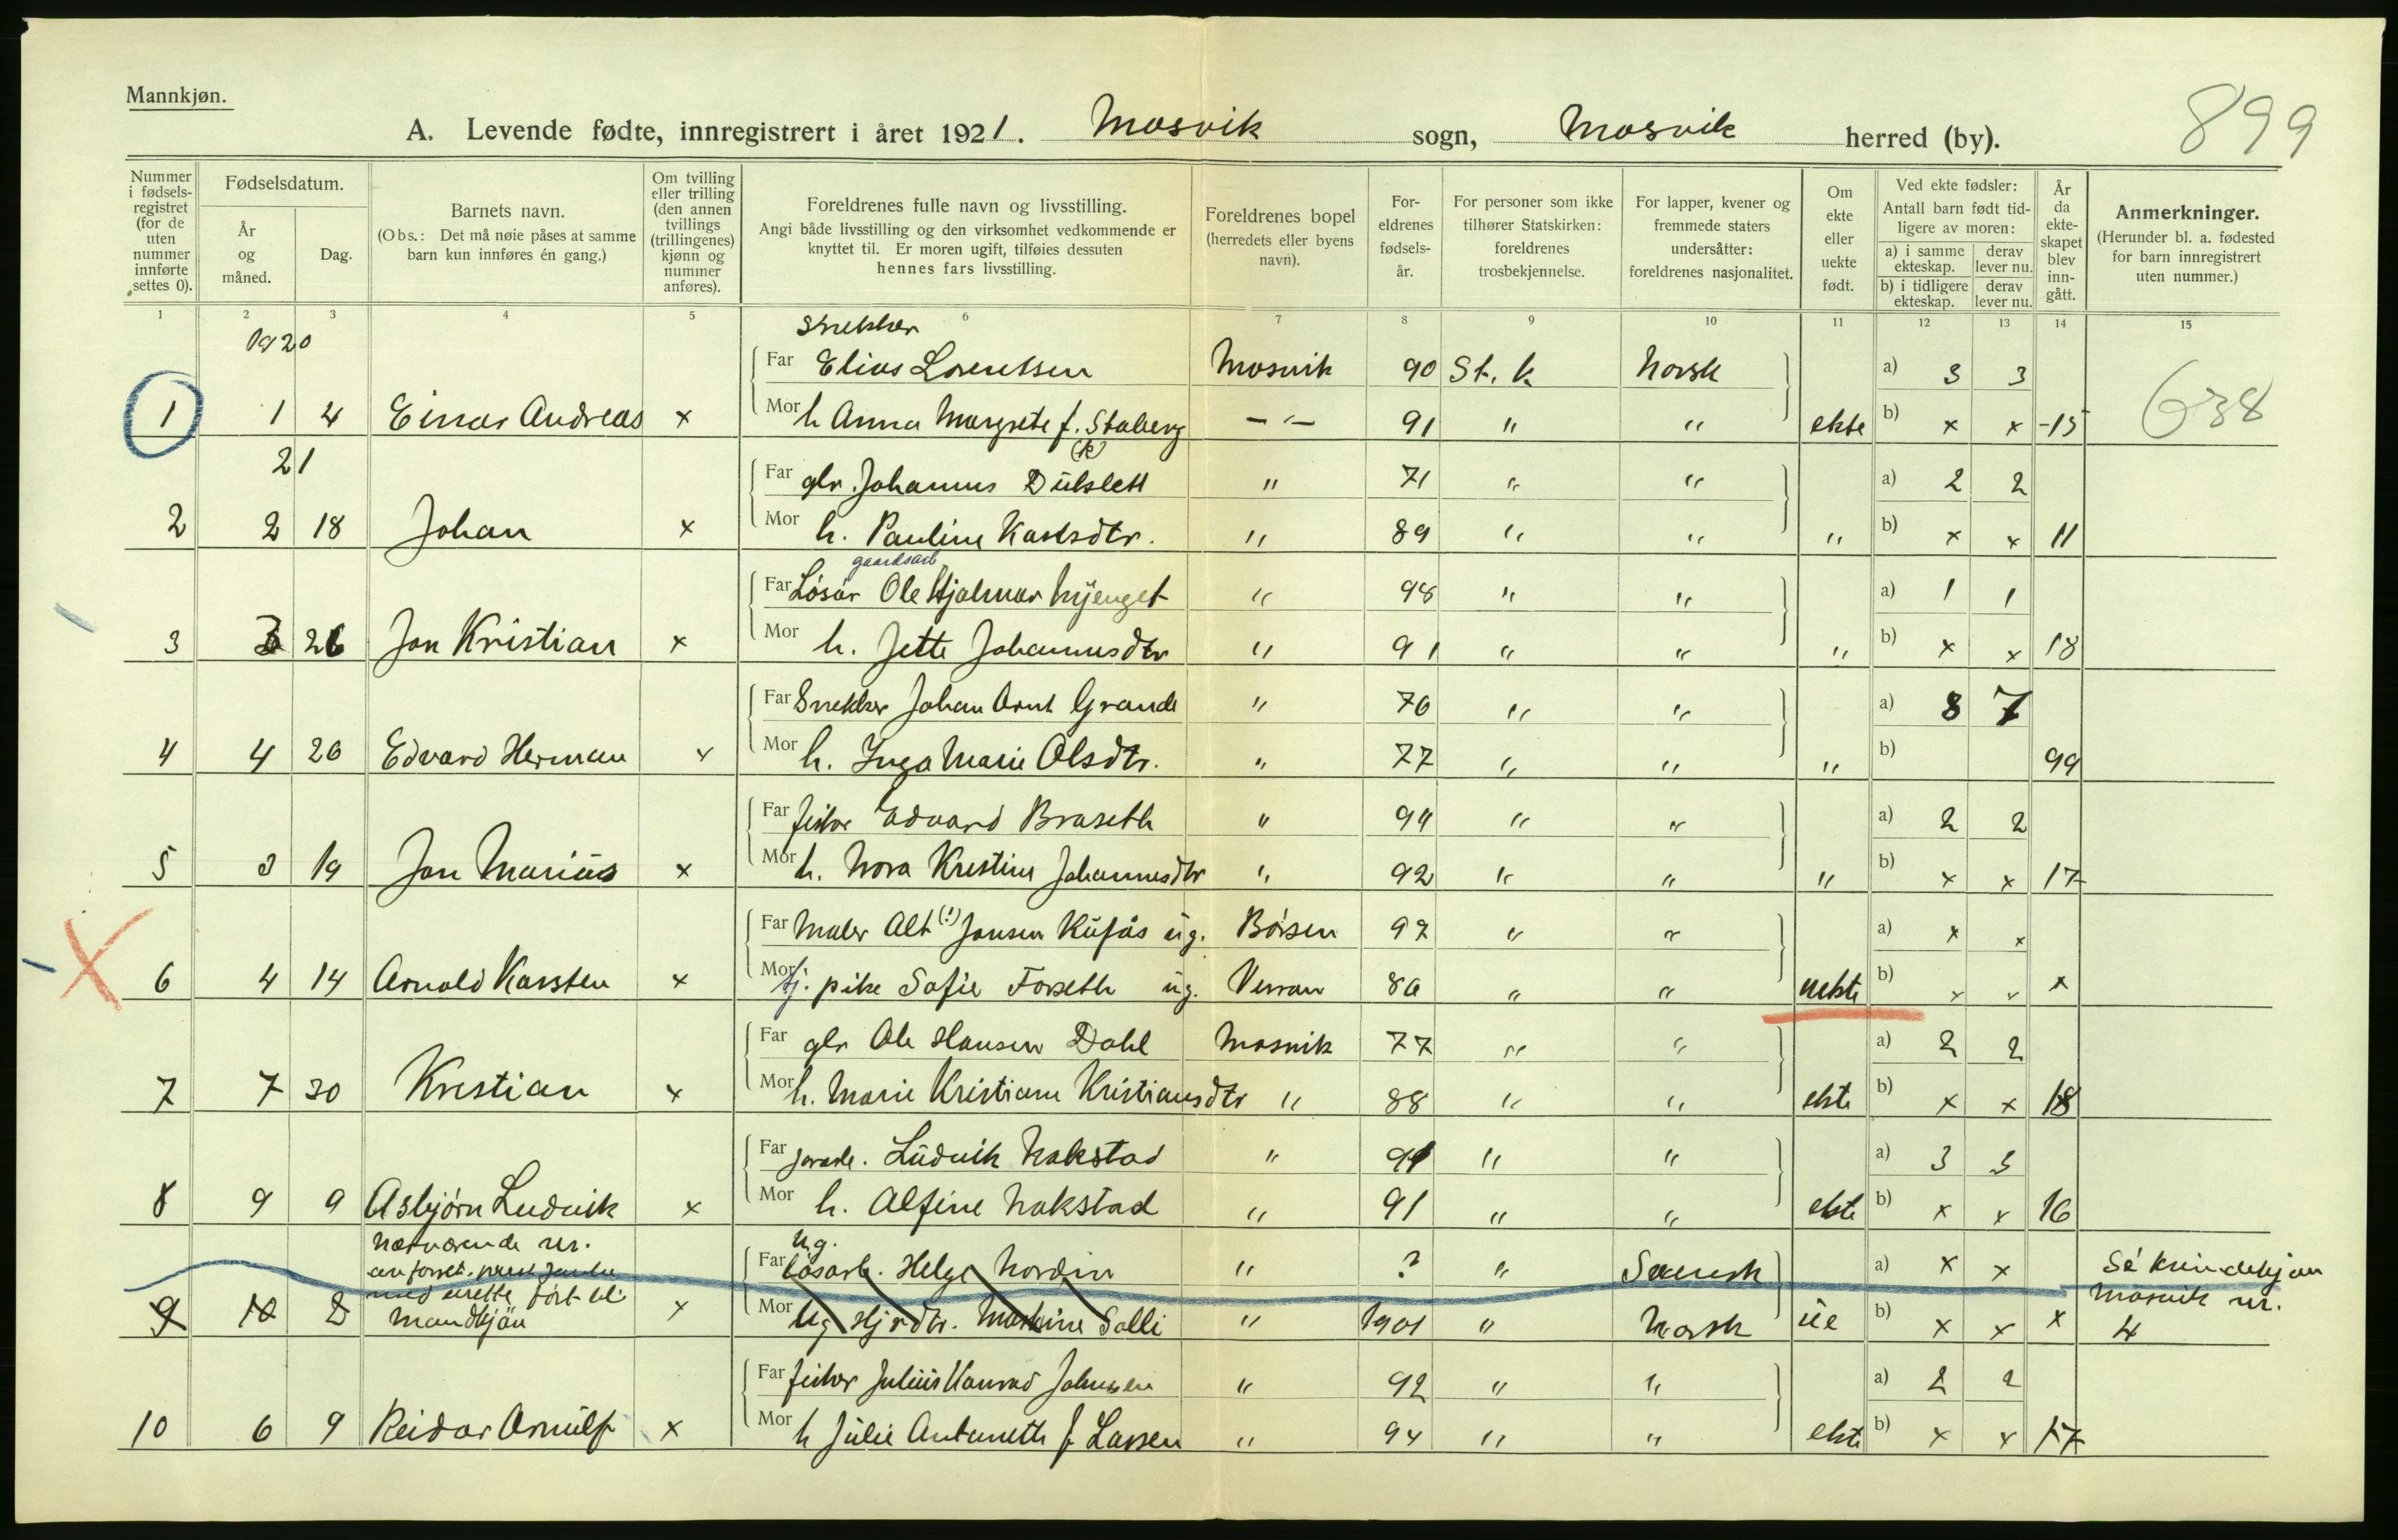 Mannkjøn.
899
A. Levende fødte, innregistrert i året 1921. Mosvik sogn, Mosvik herred (by).
Nummer i fødsels-registret (for de uten nummer innførte settes 0).
Fødselsdatum.
År og måned.
Dag.
Barnets navn.
(Obs.: Det må nøie påses at samme barn kun innføres én gang.)
Om tvilling eller trilling (den annen tvillings (trillingenes) kjønn og nummer anføres).
Foreldrenes fulle navn og livsstilling.
Angi både livsstilling og den virksomhet vedkommende er knyttet til. Er moren ugift, tilføies dessuten hennes fars livsstilling.
Foreldrenes bopel (herredets eller byens navn).
For-eldrenes fødsels-år.
For personer som ikke tilhører Statskirken: foreldrenes trosbekjennelse.
For lapper, kvener og fremmede staters undersåtter: foreldrenes nasjonalitet.
Om ekte eller uekte født.
Ved ekte fødsler: Antall barn født tid-ligere av moren:
a) i samme ekteskap. derav lever nu.
b) i tidligere ekteskap. derav lever nu.
År da ekte-skapet blev inn-gått.
Anmerkninger.
(Herunder bl. a. fødested for barn innregistrert uten nummer.)
1 2 3 4 5 6 7 8 9 10 11 12 13 14 15
1920 Snekker
Far Elias Lorentsen Mosvik 90 St. k. Norsk a) 3 3 638
1 1 4 Einar Andreas × Mor h Anna Margrete f. Staberg —"— 91 " " ekte b) × × -15
21 (k)
Far gbr. Johannes Dulslett " 71 " " a) 2 2
2 2 18 Johan × Mor h. Pauline Karlsdtr. " 89 " " " b) × × 11
gaardsarb
Far Løsar Ole Hjalmar Nyenget " 98 " " a) 1 1
3 3 26 Jon Kristian × Mor h. Jette Johannesdtr " 91 " " " b) × × 18
Far Snekker Johan Arnt Grande " 76 " " a) 8 7
4 4 26 Edvard Herman × Mor h. Inga Marie Olsdtr. " 77 " " " b) 99
Far fisker Edvard Braseth " 94 " " a) 2 2
5 3 19 Jon Marius × Mor h. Nora Kristine Johannesdtr " 92 " " " b) × × 17
Far Maler Alt (!) Jansen Kufås ug. Børsen 97 " " a) × ×
6 4 14 Arnold Karsten × Mor tj. pike Sofie Forseth ug. Verran 86 " " uekte b) × × ×
Far gbr Ole Hansen Dahl Mosvik 77 " " a) 2 2
7 7 30 Kristian × Mor h. Marie Kristiane Kristiansdtr " 88 " " ekte b) × × 18
Far Ludvik Nakstad " 91 " " a) 3 3
8 9 9 Asbjørn Ludvik × Mor h. Alfine Nakstad " 91 " " ekte b) × × 16
Nærværende nr. ug.
Far løsarb. Helge Nordin " ? " Svensk a) × × Se kvindekjøn
med urette ført til Mosvik nr.
9 12 2 Mandkjøn × Mor Ug Hjrdtr. Markine Salli " 1901 " Norsk ue b) × × × 4
Far fisker Julius Konrad Johnsen " 92 " " a) 2 2
10 6 9 Reidar Arnulf × Mor h Julie Antonette f Larsen " 94 " " ekte b) × × 17